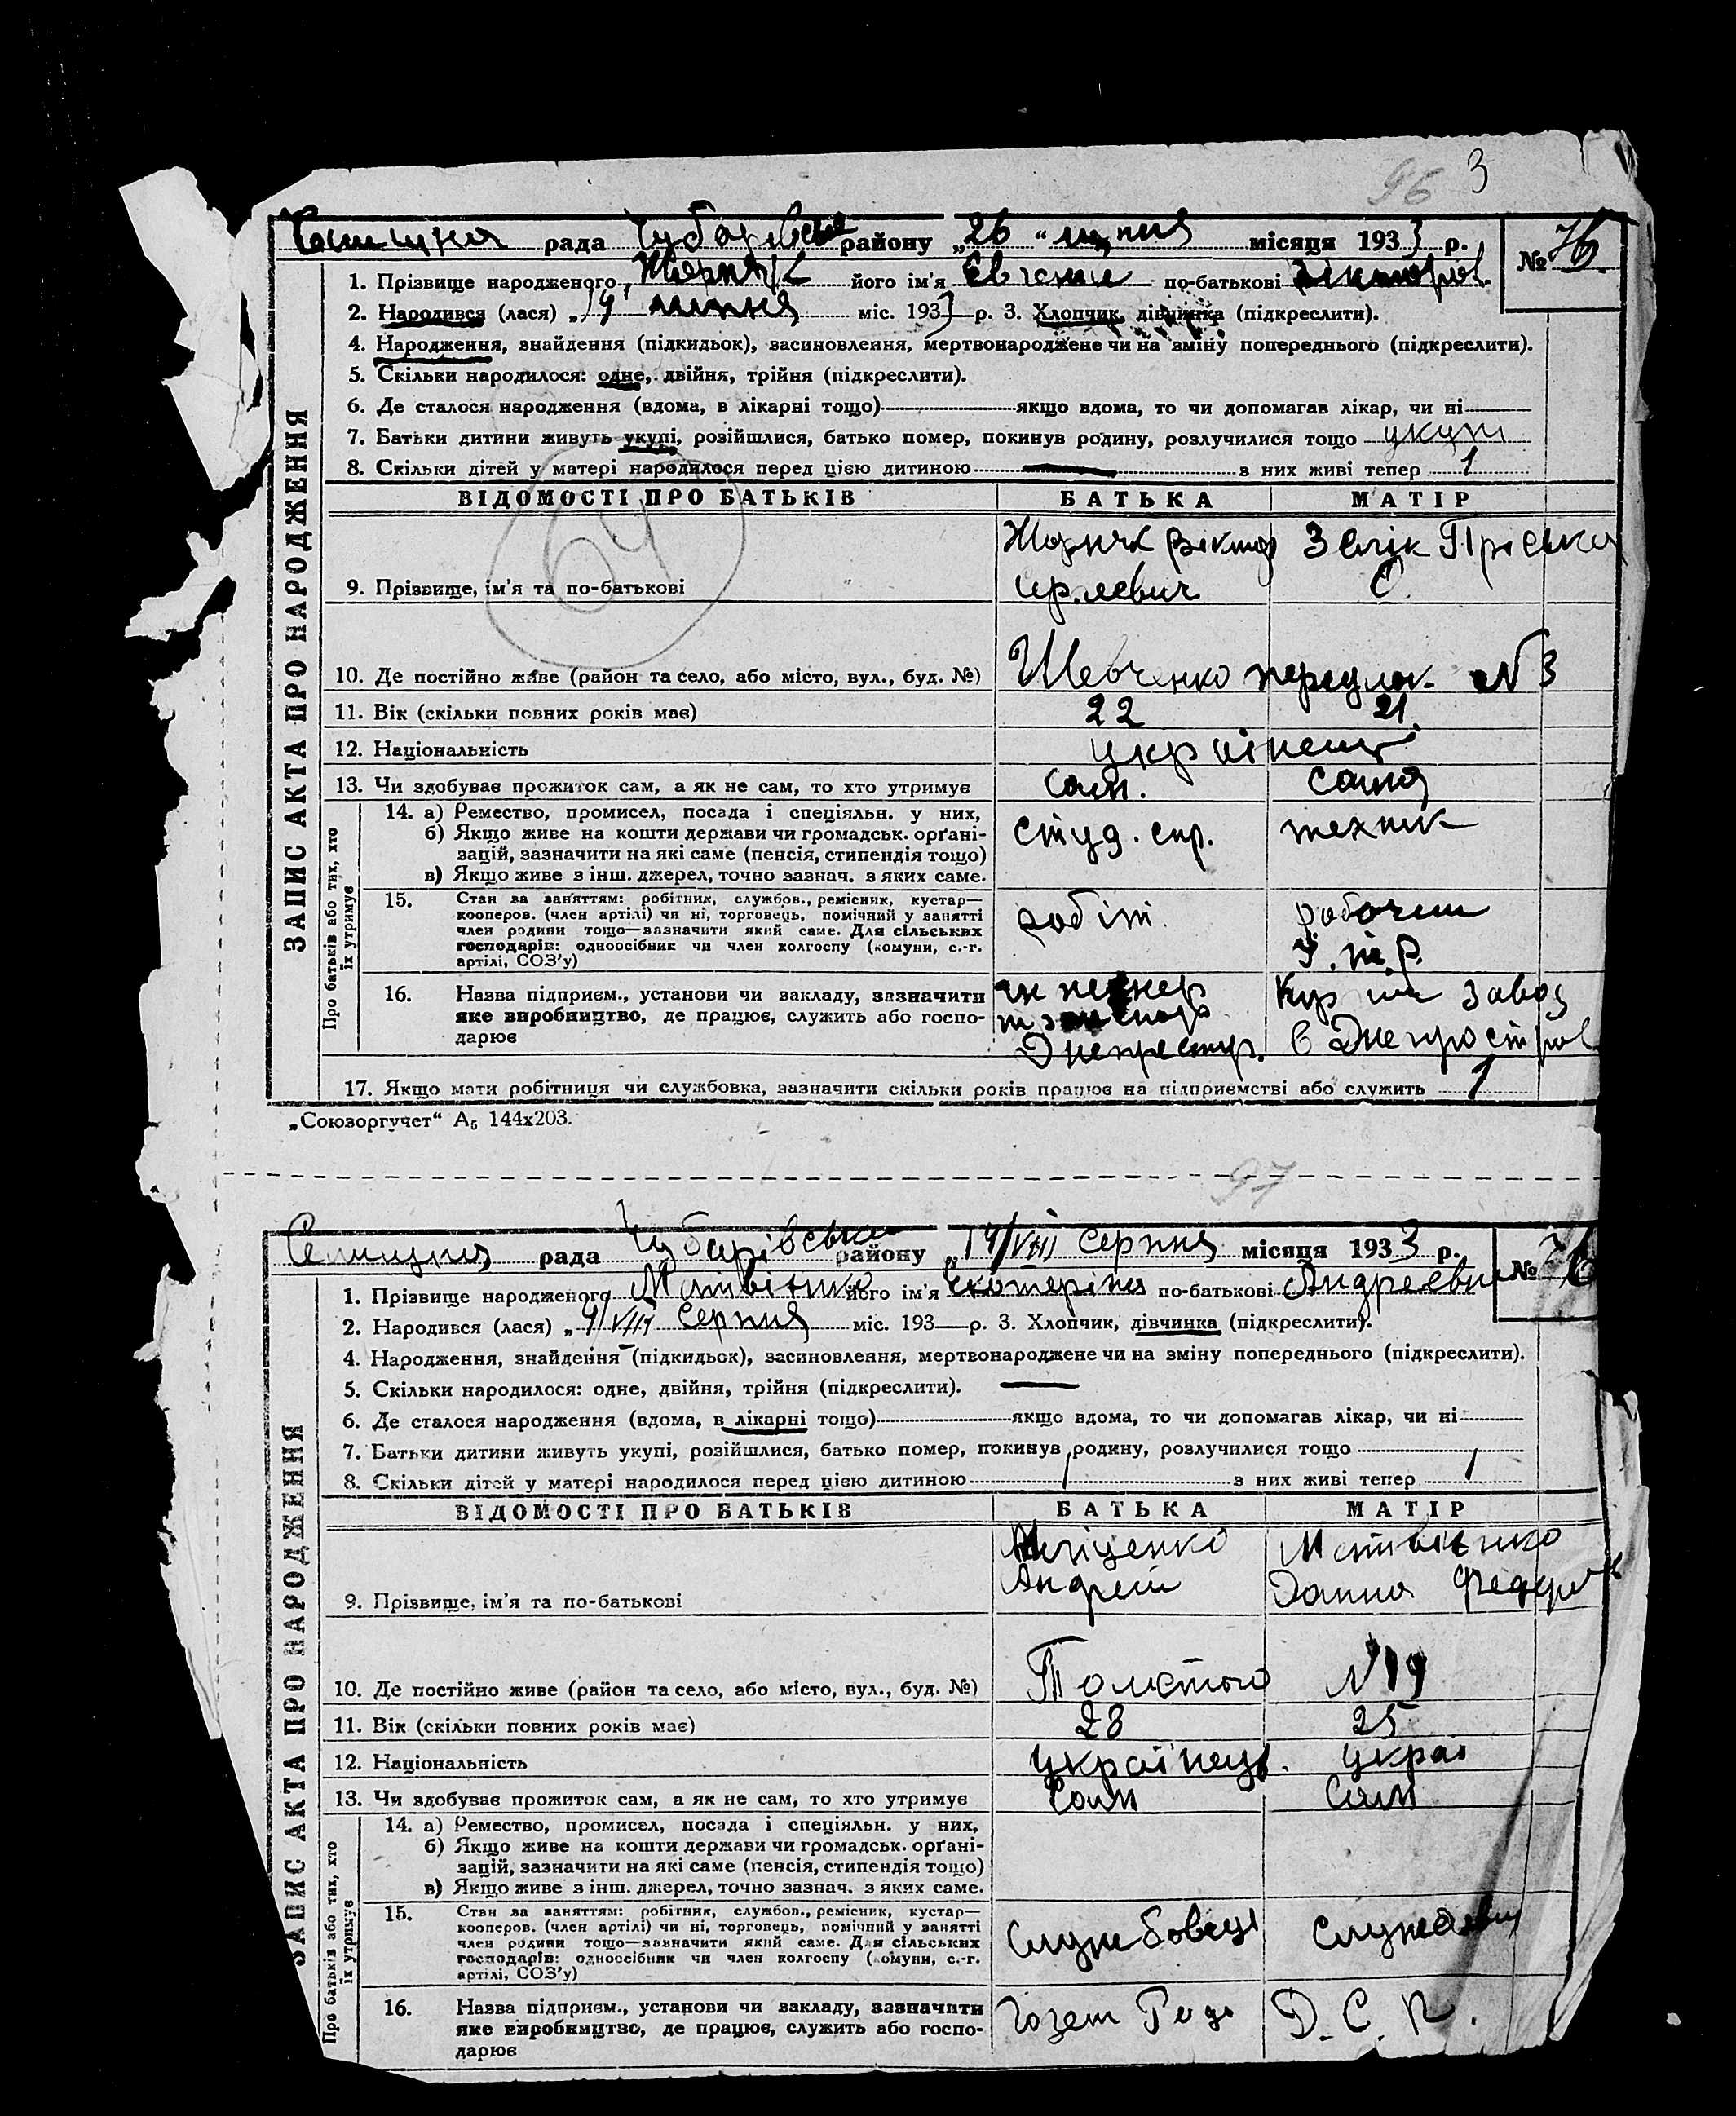 96 3
рада Чубарівське району „26“ липня місяця 1933 р. № 76
ЗАПИС АКТА ПРО НАРОДЖЕННЯ
1. Прізвище народженого його ім'я Євгение по-батькові Вікторов.
2. Народився (лася) „19 липня міс. 1933 р. 3. Хлопчик, дівчинка (підкреслити).
4. Народження, знайдення (підкидьок), засиновлення, мертвонароджене чи на зміну попереднього (підкреслити).
5. Скільки народилося: одне, двійня, трійня (підкреслити).
6. Де сталося народження (вдома, в лікарні тощо) якщо вдома, то чи допомагав лікар, чи ні
7. Батьки дитини живуть укупі, розійшлися, батько помер, покинув родину, розлучилися тощо укупі
8. Скільки дітей у матері народилося перед цією дитиною з них живі тепер 1
ВІДОМОСТІ ПРО БАТЬКІВ БАТЬКА МАТІР
64
9. Прізвище, ім'я та по-батькові
10. Де постійно живе (район та село, або місто, вул., буд. №) Шевченко переулок №3
11. Вік (скільки повних років має) 22 21.
12. Національність українці
13. Чи здобуває прожиток сам, а як не сам, то хто утримує сам. сама
Про батьків або тих, хто їх утримує
14. а) Ремество, промисел, посада і спеціяльн. у них,
б) Якщо живе на кошти держави чи громадськ. орґані-
зацій, зазначити на які саме (пенсія, стипендія тощо)
в) Якщо живе з інш. джерел, точно зазнач. з яких саме.
студ. технік
15. Стан за заняттям: робітник, службов., ремісник, кустар—
кооперов. (член артілі) чи ні, торговець, помічний у занятті
член родини тощо—зазначити який саме. Для сільських
господарів: одноосібник чи член колгоспу (комуни, с.-г.
артілі, СОЗ'у)
робіт. рабочим
16. Назва підприєм., установи чи закладу, зазначити
яке виробництво, де працює, служить або госпо-
дарює
завод
17. Якщо мати робітниця чи службовка, зазначити скільки років працює на підприємстві або служить 1
„Союзоргучет“ А₅ 144х203.
97
рада Чубарівська району „14/VIII серпня місяця 1933 р. № 76
ЗАПИС АКТА ПРО НАРОДЖЕННЯ
1. Прізвище народженого його ім'я Екатеріна по-батькові Андреевна
2. Народився (лася) „4/VIII серпня міс. 193 р. 3. Хлопчик, дівчинка (підкреслити).
4. Народження, знайдення (підкидьок), засиновлення, мертвонароджене чи на зміну попереднього (підкреслити).
5. Скільки народилося: одне, двійня, трійня (підкреслити).
6. Де сталося народження (вдома, в лікарні тощо) якщо вдома, то чи допомагав лікар, чи ні
7. Батьки дитини живуть укупі, розійшлися, батько помер, покинув родину, розлучилися тощо
8. Скільки дітей у матері народилося перед цією дитиною 1 з них живі тепер 1
ВІДОМОСТІ ПРО БАТЬКІВ БАТЬКА МАТІР
Андрей
9. Прізвище, ім'я та по-батькові
10. Де постійно живе (район та село, або місто, вул., буд. №) Толстого №19
11. Вік (скільки повних років має) 28 25
12. Національність українець. украі
13. Чи здобуває прожиток сам, а як не сам, то хто утримує сам сам
Про батьків або тих, хто їх утримує
14. а) Ремество, промисел, посада і спеціяльн. у них,
б) Якщо живе на кошти держави чи громадськ. орґані-
зацій, зазначити на які саме (пенсія, стипендія тощо)
в) Якщо живе з інш. джерел, точно зазнач. з яких саме.
15. Стан за заняттям: робітник, службов., ремісник, кустар—
кооперов. (член артілі) чи ні, торговець, помічний у занятті
член родини тощо—зазначити який саме. Для сільських
господарів: одноосібник чи член колгоспу (комуни, с.-г.
артілі, СОЗ'у)
службовець
16. Назва підприєм., установи чи закладу, зазначити
яке виробництво, де працює, служить або госпо-
дарює